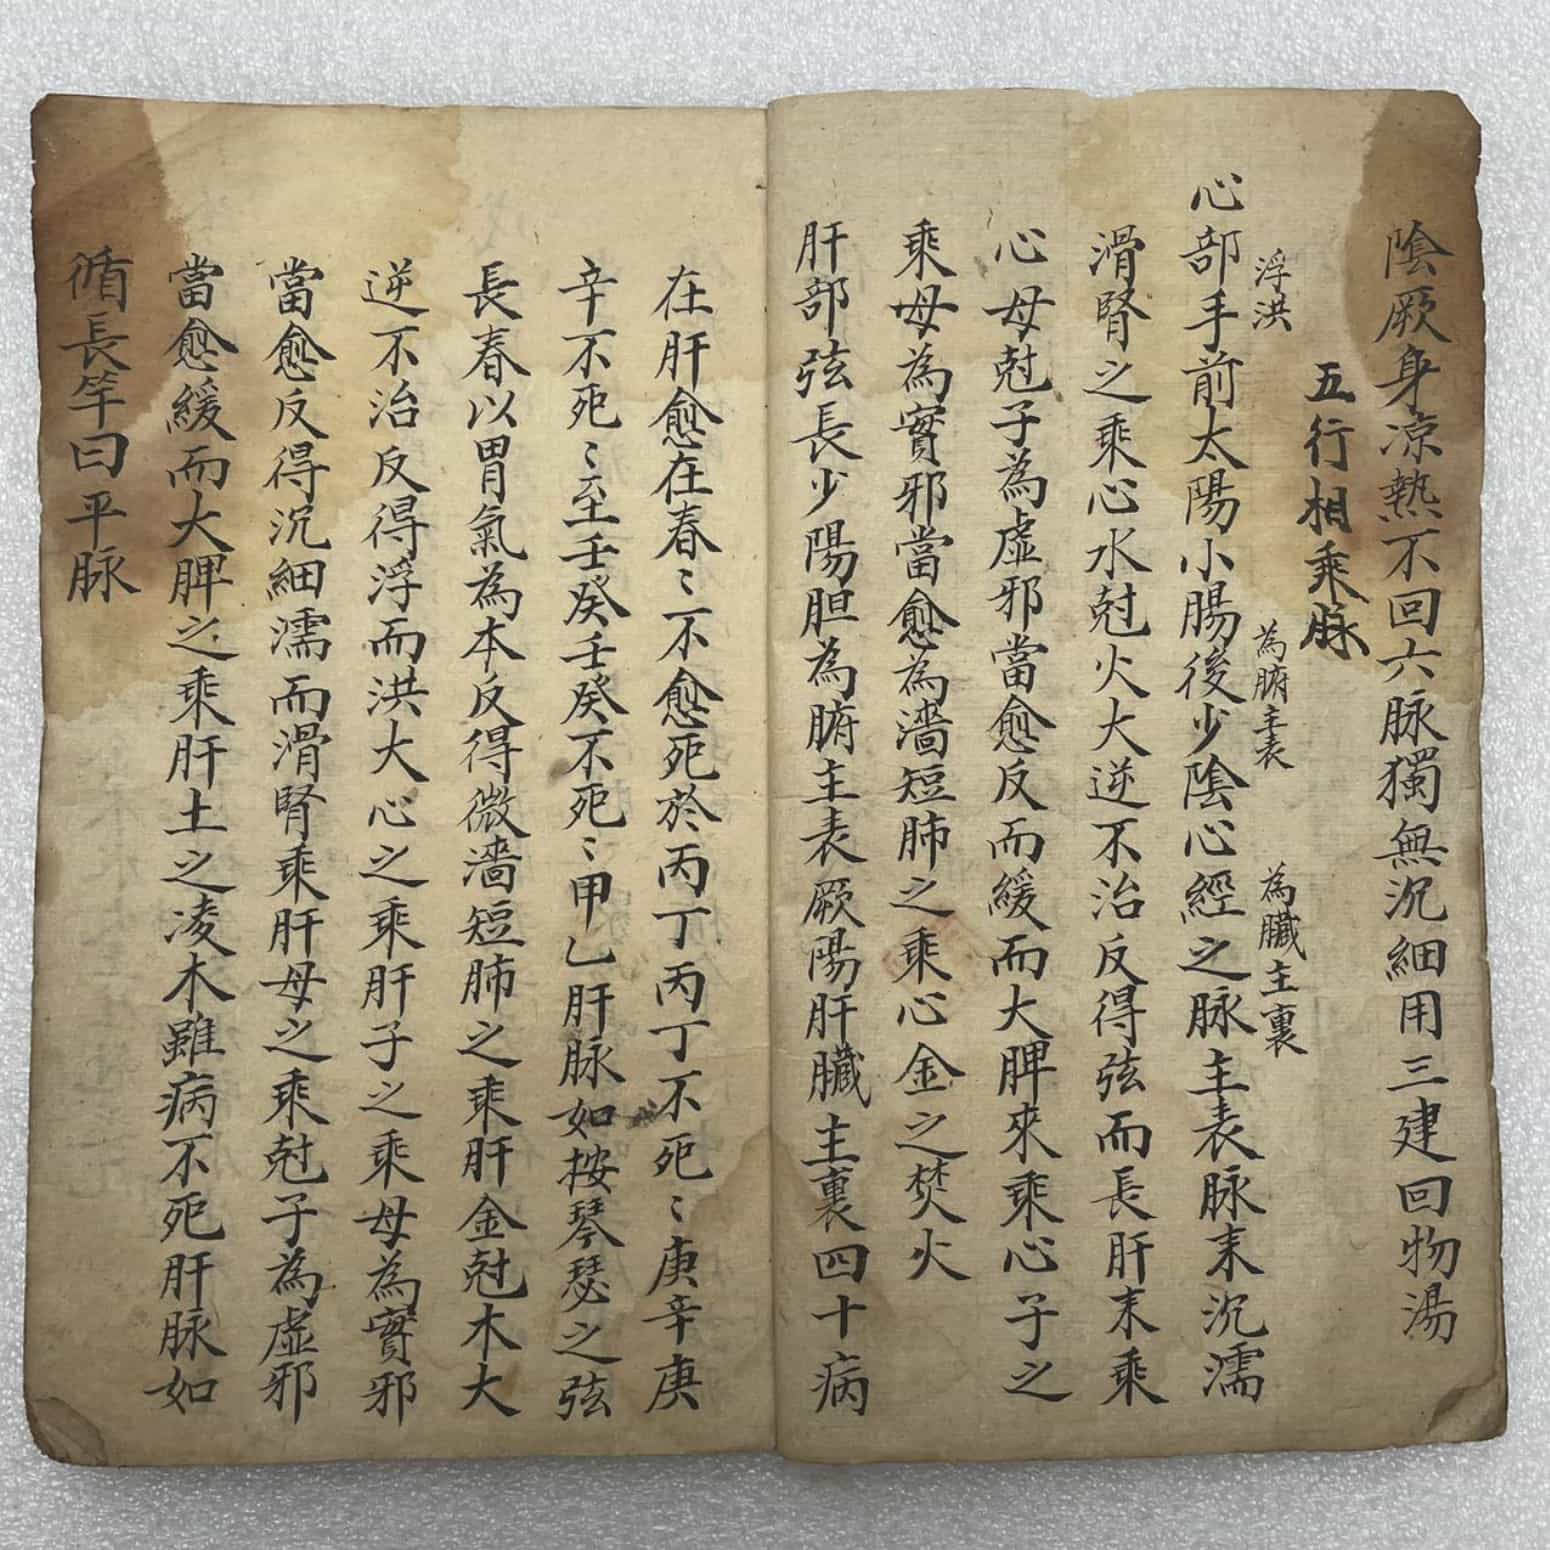 陰厥身凉熱不回六脉獨無沉細用三建回物湯
五行相乘脉
浮洪　為腑主表　為臟主裏
心部手前太陽小腸後少陰心經之脉主表脉末沉濡
滑腎之乘心水尅火大逆不治反得弦而長肝末乘
心母尅子為虛邪當愈反而緩而大脾來乘心子之
乘母為實邪當愈為濇短肺之乘心金之焚火
肝部弦長少陽胆為腑主表厥陽肝臟主裏四十病
在肝愈在春〻不愈死於丙丁丙丁不死〻庚辛庚
辛不死〻至壬癸壬癸不死〻甲乙肝脉如按琴瑟之弦
長春以胃氣為本反得微濇短肺之乘肝金尅木大
逆不治反得浮而洪大心之乘肝子之乘母為實邪
當愈反得沉細濡而滑腎乘肝母之乘尅子為虛邪
當愈緩而大脾之乘肝土之凌木雖病不死肝脉如
循長竿曰平脉